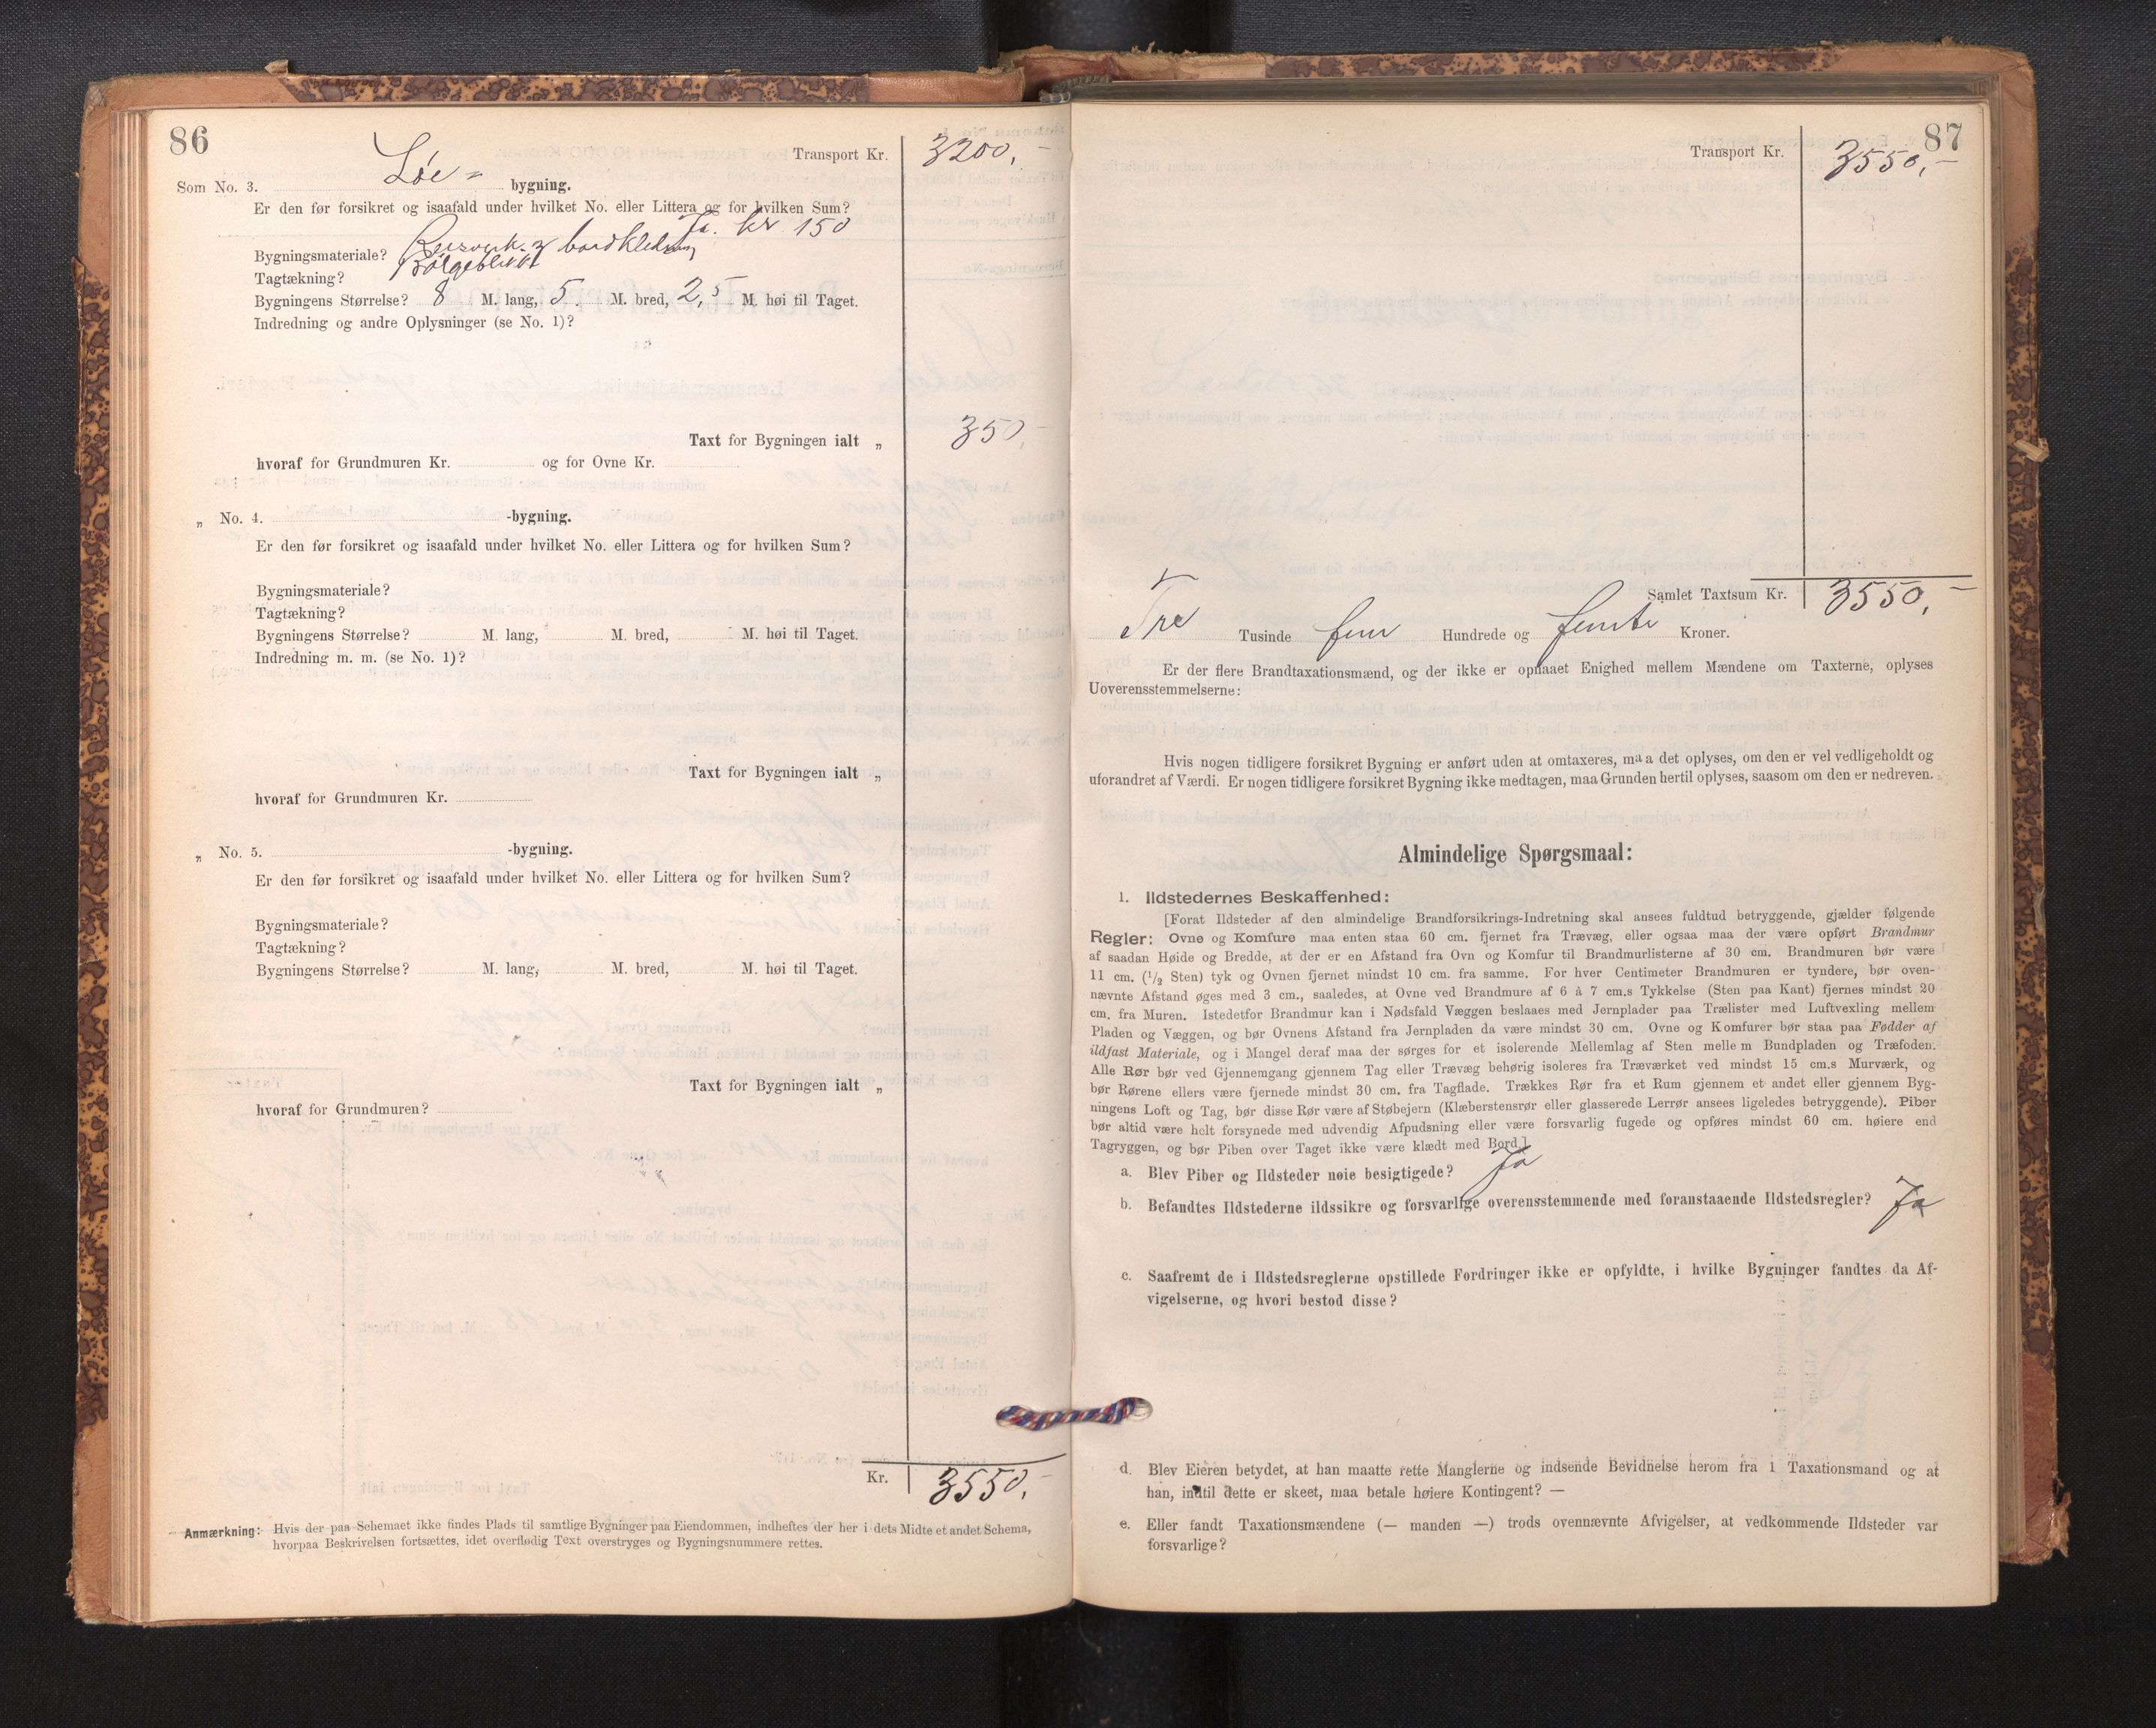 86
Transport Kr. 3200,-
Som No. 3. Löe- bygning.
Er den før forsikret og isaafald under hvilket No. eller Littera og for hvilken Sum?
Ja. kr 150
Bygningsmateriale? Reisverk. & bordkledning
Tagtækning? Bölgeblikk
Bygningens Størrelse? 8 M. lang, 5. M. bred, 2,5 M. høi til Taget.
Indredning og andre Oplysninger (se No. 1)?
Taxt for Bygningen ialt „ 350,-
hvoraf for Grundmuren Kr. og for Ovne Kr.
„ No. 4. -bygning.
Er den før forsikret og isaafald under hvilket No. eller Littera og for hvilken Sum?
Bygningsmateriale?
Tagtækning?
Bygningens Størrelse? M. lang, M. bred, M. høi til Taget.
Indredning m. m. (se No. 1)?
Taxt for Bygningen ialt „
hvoraf for Grundmuren Kr.
„ No. 5. -bygning.
Er den før forsikret og isaafald under hvilket No. eller Littera og for hvilken Sum?
Bygningsmateriale?
Tagtækning?
Bygningens Størrelse? M. lang, M. bred, M. høi til Taget.
Taxt for Bygningen ialt „
hvoraf for Grundmuren?
Kr. 3550,-
Anmærkning: Hvis der paa Schemaet ikke findes Plads til samtlige Bygninger paa Eiendommen, indheftes der her i dets Midte et andet Schema,
hvorpaa Beskrivelsen fortsættes, idet overflødig Text overstryges og Bygningsnummere rettes.
87
Transport Kr. 3550,-
Samlet Taxtsum Kr. 3550,-
Tre Tusinde fem Hundrede og femti Kroner.
Er der flere Brandtaxationsmænd, og der ikke er opnaaet Enighed mellem Mændene om Taxterne, oplyses
Uoverensstemmelserne:
Hvis nogen tidligere forsikret Bygning er anført uden at omtaxeres, maa det oplyses, om den er vel vedligeholdt og
uforandret af Værdi. Er nogen tidligere forsikret Bygning ikke medtagen, maa Grunden hertil oplyses, saasom om den er nedreven.
Almindelige Spørgsmaal:
1. Ildstedernes Beskaffenhed:
[Forat Ildsteder af den almindelige Brandforsikrings-Indretning skal ansees fuldtud betryggende, gjælder følgende
Regler: Ovne og Komfure maa enten staa 60 cm. fjernet fra Trævæg, eller ogsaa maa der være opført Brandmur
af saadan Høide og Bredde, at der er en Afstand fra Ovn og Komfur til Brandmurlisterne af 30 cm. Brandmuren bør være
11 cm. (1/2 Sten) tyk og Ovnen fjernet mindst 10 cm. fra samme. For hver Centimeter Brandmuren er tyndere, bør oven-
nævnte Afstand øges med 3 cm., saaledes, at Ovne ved Brandmure af 6 à 7 cm.s Tykkelse (Sten paa Kant) fjernes mindst 20
cm. fra Muren. Istedetfor Brandmur kan i Nødsfald Væggen beslaaes med Jernplader paa Trælister med Luftvexling mellem
Pladen og Væggen, og bør Ovnens Afstand fra Jernpladen da være mindst 30 cm. Ovne og Komfurer bør staa paa Fødder af
ildfast Materiale, og i Mangel deraf maa der sørges for et isolerende Mellemlag af Sten mellem Bundpladen og Træfoden.
Alle Rør bør ved Gjennemgang gjennem Tag eller Trævæg behørig isoleres fra Træværket ved mindst 15 cm.s Murværk, og
bør Rørene ellers være fjernede mindst 30 cm. fra Tagflade. Trækkes Rør fra et Rum gjennem et andet eller gjennem Byg-
ningens Loft og Tag, bør disse Rør være af Støbejern (Klæberstensrør eller glasserede Lerrør ansees ligeledes betryggende). Piber
bør altid være holt forsynede med udvendig Afpudsning eller være forsvarlig fugede og opføres mindst 60 cm. høiere end
Tagryggen, og bør Piben over Taget ikke være klædt med Bord.]
a. Blev Piber og Ildsteder nøie besigtigede? Ja
b. Befandtes Ildstederne ildssikre og forsvarlige overensstemmende med foranstaaende Ildstedsregler? Ja
c. Saafremt de i Ildstedsreglerne opstillede Fordringer ikke er opfyldte, i hvilke Bygninger fandtes da Af-
vigelserne, og hvori bestod disse?
d. Blev Eieren betydet, at han maatte rette Manglerne og indsende Bevidnelse herom fra 1 Taxationsmand og at
han, indtil dette er skeet, maa betale høiere Kontingent? —
e. Eller fandt Taxationsmændene (— manden —) trods ovennævnte Afvigelser, at vedkommende Ildsteder var
forsvarlige?